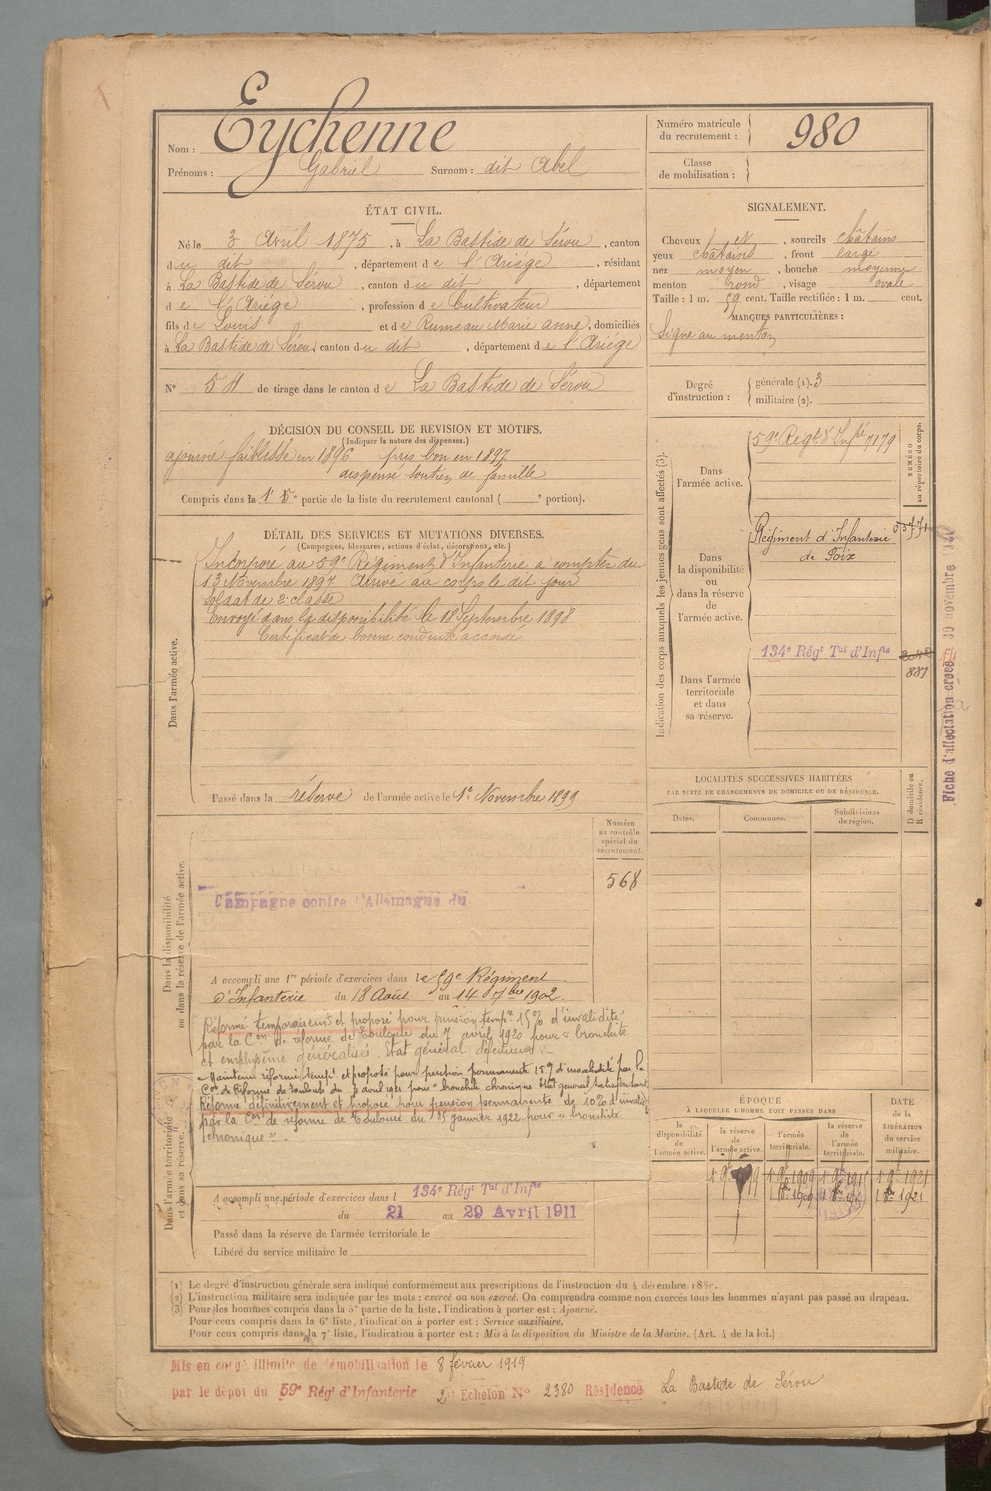 Nom : Eychenne
Prénoms : Gabriel Surnom : dit Abel
Numéro matricule du recrutement : 980
Classe de mobilisation :
ÉTAT CIVIL.
Né le 3 Avril 1875, à La Bastide de Sérou, canton
du dit, département de l'Ariège, résidant
à La Bastide de Sérou, canton du dit, département
de l'Ariège, profession de Cultivateur
fils de Louis et de Rumeau Marie Anne, domiciliés
à La Bastide de Sérou, canton du dit, département de l'Ariège
N° 54 de tirage dans le canton de La Bastide de Sérou
SIGNALEMENT.
Cheveux et, sourcils châtains
yeux châtains, front large
nez moyen, bouche moyenne
menton rond, visage ovale
Taille : 1 m. 59 cent. Taille rectifiée : 1 m. cent.
MARQUES PARTICULIÈRES :
Signe au menton
Degré d'instruction : générale (1). 3
militaire (2).
DÉCISION DU CONSEIL DE REVISION ET MOTIFS.
(Indiquer la nature des dispenses.)
ajourné faiblesse en 1896 pris bon en 1897
dispensé soutien de famille
Compris dans la partie de la liste du recrutement cantonal ( e portion).
DÉTAIL DES SERVICES ET MUTATIONS DIVERSES.
(Campagnes, blessures, actions d'éclat, décorations, etc.)
Dans l'armée active.
Incorporé au 59e Régiment d'Infanterie à compter du
13 Novembre 1897 Arrivé au corps le dit jour
Soldat de 2e classe
Envoyé dans la disponibilité le 18 Septembre 1898
Certificat de bonne conduite accordé
Passé dans la réserve de l'armée active le 1er Novembre 1899
Indication des corps auxquels les jeunes gens sont affectés (3).
NUMÉRO au répertoire du corps.
Dans l'armée active.
59e Régt d'Infie 7179
Dans la disponibilité ou dans la réserve de l'armée active.
Régiment d'Infanterie
de Foix
Dans l'armée territoriale et dans sa réserve.
134e Régt Tal d'Infie
887
Fiche d'affectation créée 30 novembre
LOCALITÉS SUCCESSIVES HABITÉES
PAR SUITE DE CHANGEMENTS DE DOMICILE OU DE RÉSIDENCE.
D domicile ou R résidence.
Dates. Communes. Subdivisions de région.
Dans la disponibilité ou dans la réserve de l'armée active.
Numéro au contrôle spécial du recrutement.
568
Campagne contre l'Allemagne du
A accompli une 1re période d'exercices dans le 59e Régiment
d'Infanterie du 18 Août au 14 7bre 1902.
Réformé temporairement et proposé pour pension tempre 15% d'invalidité
par la Con de réforme de Toulouse du 7 avril 1920 pour « bronchite
et emphysème généralisés. Etat général défectueux »
Maintenu réformé tempre et proposé pour pension permanente 15% d'invalidité par la
Con de Réforme de Toulouse du avril 1921 pour "bronchite chronique Etat général
Réformé définitivement et proposé pour pension permanente de 10% d'invalidité
par la Con de réforme de Toulouse du 31 janvier 1922 pour « bronchite
chronique ».
Dans l'armée territoriale et dans sa réserve.
A accompli une période d'exercices dans l 134e Régt Tal d'Infie
du 21 au 29 Avril 1911
Passé dans la réserve de l'armée territoriale le
Libéré du service militaire le
ÉPOQUE
À LAQUELLE L'HOMME DOIT PASSER DANS
la disponibilité de l'armée active.
la réserve de l'armée active.
l'armée territoriale.
la réserve de l'armée territoriale.
DATE de la LIBÉRATION du service militaire.
(1) Le degré d'instruction générale sera indiqué conformément aux prescriptions de l'instruction du 4 décembre
(2) L'instruction militaire sera indiquée par les mots : exercé ou non exercé. On comprendra comme non exercés tous les hommes n'ayant pas passé au drapeau.
(3) Pour les hommes compris dans la 5e partie de la liste, l'indication à porter est : Ajourné.
Pour ceux compris dans la 6e liste, l'indication à porter est : Service auxiliaire.
Pour ceux compris dans la 7e liste, l'indication à porter est : Mis à la disposition du Ministre de la Marine. (Art. 4 de la loi.)
Mis en congé illimité de démobilisation le 8 février 1919
par le dépôt du 59e Régt d'Infanterie 2e Echelon N° 2380 Résidence La Bastide de Sérou